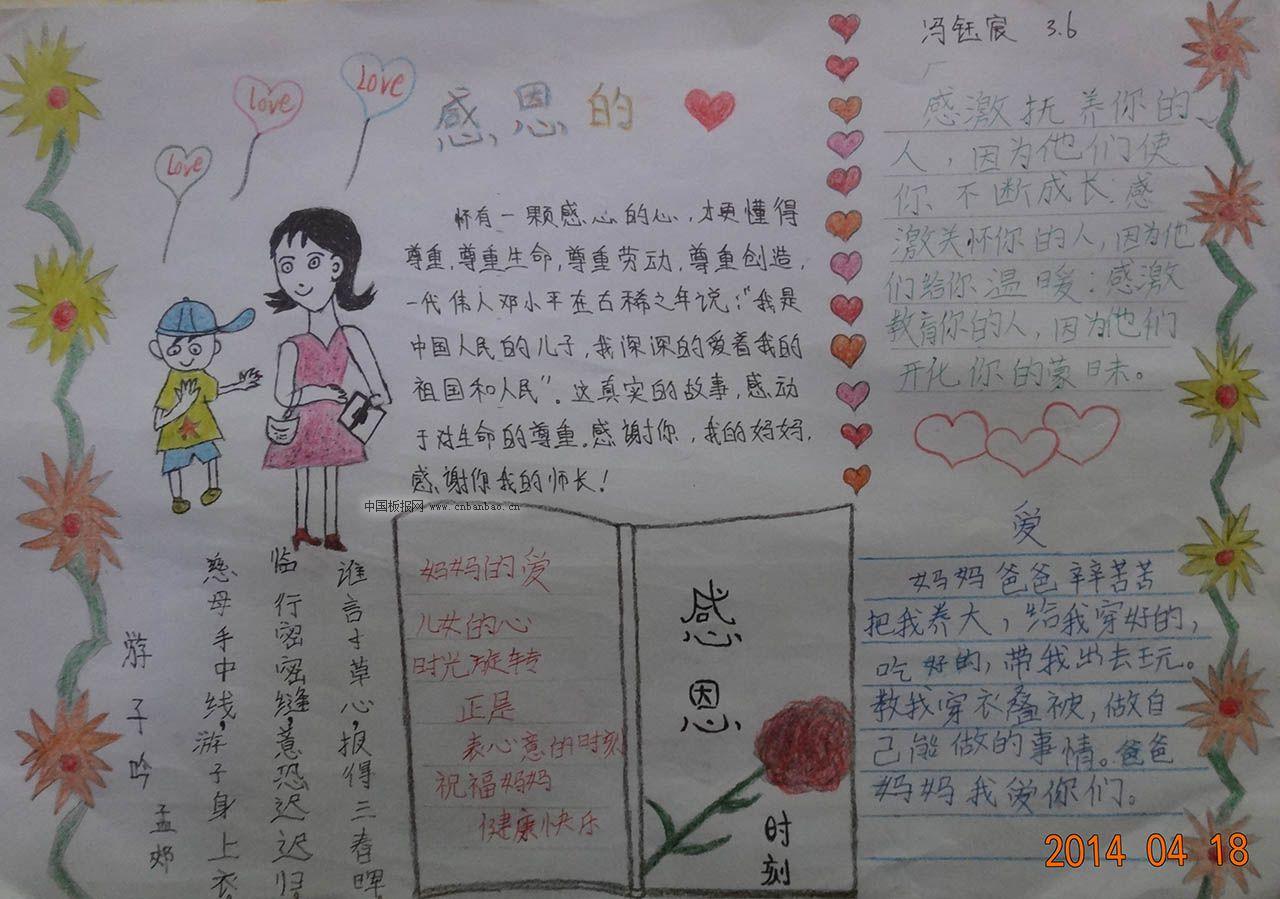 冯钰宸 3.6
love
love
Love
感恩的
怀有一颗感心的心，才更懂得
尊重，尊重生命，尊重劳动，尊重创造，
一代伟人邓小平在古稀之年说：“我是
中国人民的儿子，我深深的爱着我的
祖国和人民”。这真实的故事，感动
于对生命的尊重。感谢你，我的妈妈，
感谢你我的师长！
感激抚养你的
人，因为他们使
你不断成长.感
激关怀你的人，因为他
们给你温暖：感激
教育你的人，因为他们
开化你的蒙昧。
中国板报网 www.cnbanbao.cn
谁言寸草心，报得三春晖
临行密密缝，意恐迟迟归，
慈母手中线，游子身上衣，
游子吟
孟郊
妈妈的爱
儿女的心
时光旋转
正是
表心意的时刻
祝福妈妈
健康快乐
感恩
时刻
爱
妈妈爸爸辛辛苦苦
把我养大，给我穿好的，
吃好的，带我出去玩。
教我穿衣叠被，做自
己能做的事情。爸爸
妈妈我爱你们。
2014 04 18